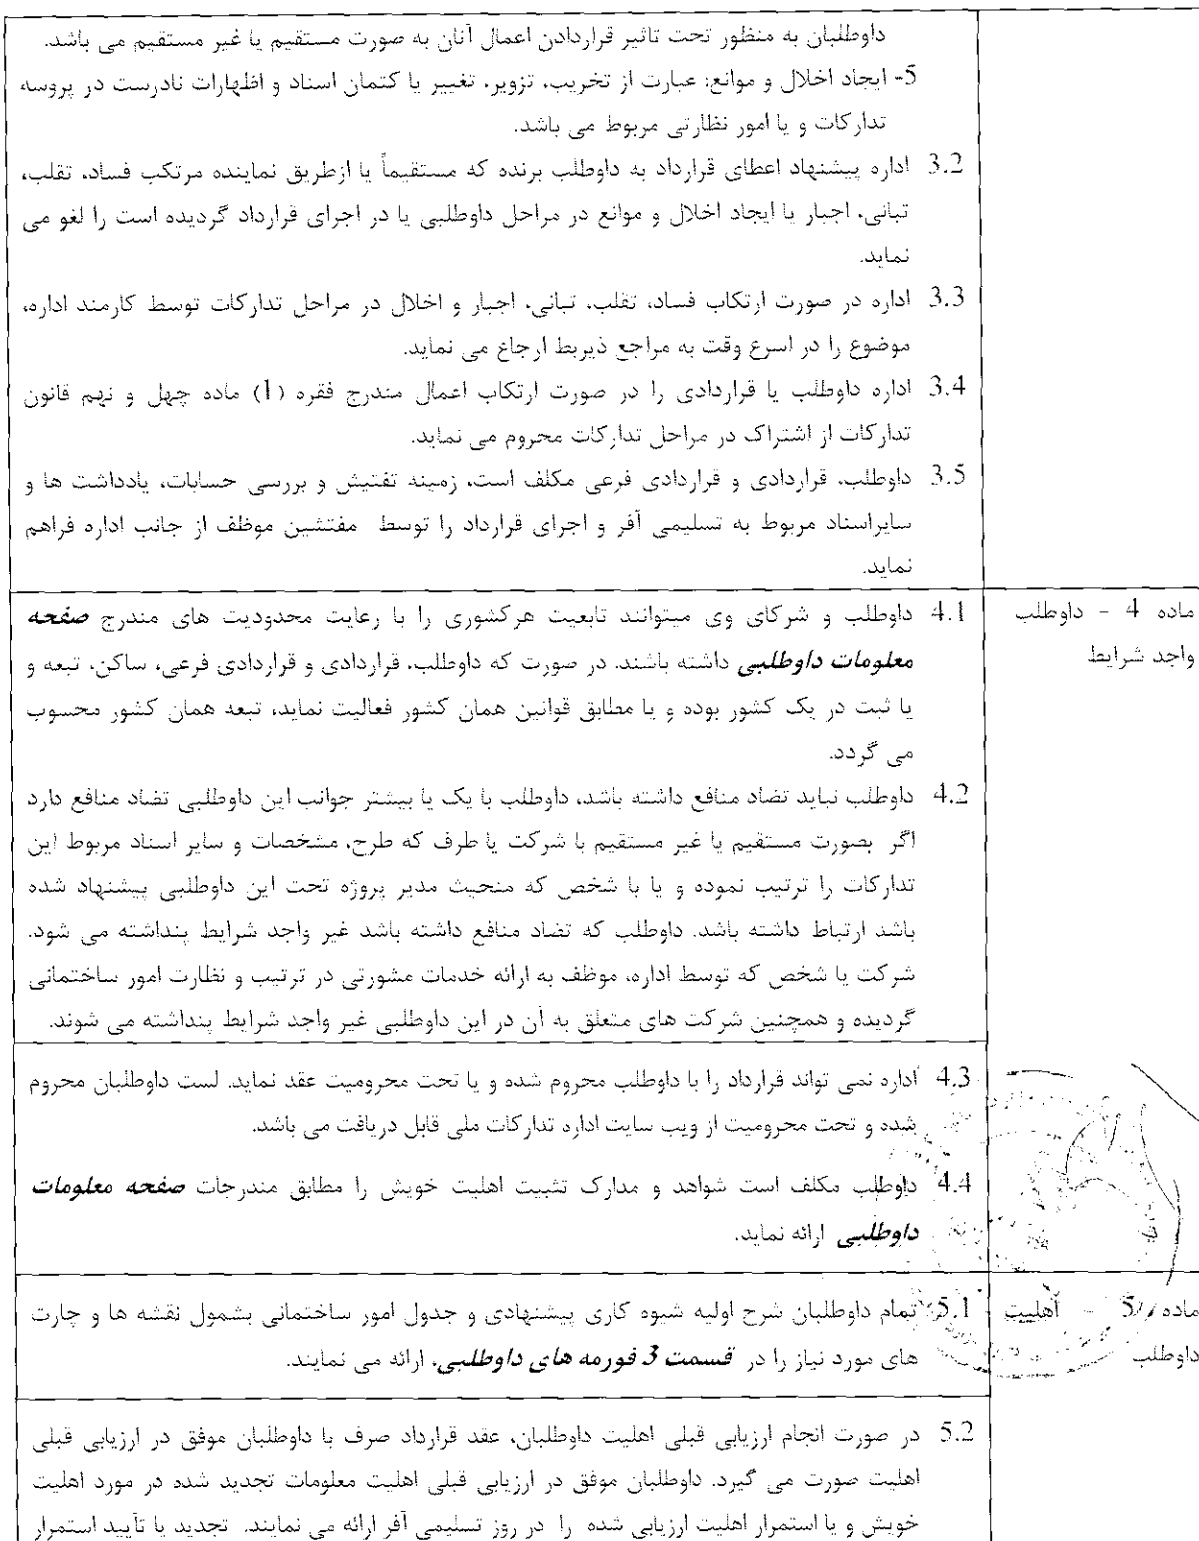 داوطلبان به منظور تحت تاثیر قراردادن اعمال آنان به صورت مستقیم یا غیر مستقیم می باشد.
5- ایجاد اخلال و موانع: عبارت از تخریب، تزویر، تغییر یا کتمان اسناد و اظهارات نادرست در پروسه
تدارکات و یا امور نظارتی مربوط می باشد.
3.2 اداره پیشنهاد اعطای قرارداد به داوطلب برنده که مستقیماً یا ازطریق نماینده مرتکب فساد، تقلب،
تبانی، اجبار یا ایجاد اخلال و موانع در مراحل داوطلبی یا در اجرای قرارداد گردیده است را لغو می
نماید.
3.3 اداره در صورت ارتکاب فساد، تقلب، تبانی، اجبار و اخلال در مراحل تدارکات توسط کارمند اداره،
موضوع را در اسرع وقت به مراجع ذیربط ارجاع می نماید.
3.4 اداره داوطلب یا قراردادی را در صورت ارتکاب اعمال مندرج فقره (1) ماده چهل و نهم قانون
تدارکات از اشتراک در مراحل تدارکات محروم می نماید.
3.5 داوطلب، قراردادی و قراردادی فرعی مکلف است، زمینه تفتیش و بررسی حسابات، یادداشت ها و
سایراسناد مربوط به تسلیمی آفر و اجرای قرارداد را توسط مفتشین موظف از جانب اداره فراهم
نماید.
ماده 4 - داوطلب
واجد شرایط
4.1 داوطلب و شرکای وی میتوانند تابعیت هرکشوری را با رعایت محدودیت های مندرج صفحه
معلومات داوطلبی داشته باشند. در صورت که داوطلب، قراردادی و قراردادی فرعی، ساکن، تبعه و
یا ثبت در یک کشور بوده و یا مطابق قوانین همان کشور فعالیت نماید، تبعه همان کشور محسوب
می گردد.
4.2 داوطلب نباید تضاد منافع داشته باشد، داوطلب با یک یا بیشتر جوانب این داوطلبی تضاد منافع دارد
اگر بصورت مستقیم یا غیر مستقیم با شرکت یا طرف که طرح، مشخصات و سایر اسناد مربوط این
تدارکات را ترتیب نموده و یا با شخص که منحیث مدیر پروژه تحت این داوطلبی پیشنهاد شده
باشد ارتباط داشته باشد. داوطلب که تضاد منافع داشته باشد غیر واجد شرایط پنداشته می شود.
شرکت یا شخص که توسط اداره، موظف به ارائه خدمات مشورتی در ترتیب و نظارت امور ساختمانی
گردیده و همچنین شرکت های متعلق به آن در این داوطلبی غیر واجد شرایط پنداشته می شوند.
4.3 اداره نمی تواند قرارداد را با داوطلب محروم شده و یا تحت محرومیت عقد نماید. لست داوطلبان محروم
شده و تحت محرومیت از ویب سایت اداره تدارکات ملی قابل دریافت می باشد.
4.4 داوطلب مکلف است شواهد و مدارک تثبیت اهلیت خویش را مطابق مندرجات صفحه معلومات
داوطلبی ارائه نماید.
ماده 5 - اهلیت
داوطلب
5.1 تمام داوطلبان شرح اولیه شیوه کاری پیشنهادی و جدول امور ساختمانی بشمول نقشه ها و چارت
های مورد نیاز را در قسمت 3 فورمه های داوطلبی، ارائه می نمایند.
5.2 در صورت انجام ارزیابی قبلی اهلیت داوطلبان، عقد قرارداد صرف با داوطلبان موفق در ارزیابی قبلی
اهلیت صورت می گیرد. داوطلبان موفق در ارزیابی قبلی اهلیت معلومات تجدید شده در مورد اهلیت
خویش و یا استمرار اهلیت ارزیابی شده را در روز تسلیمی آفر ارائه می نمایند. تجدید یا تأیید استمرار